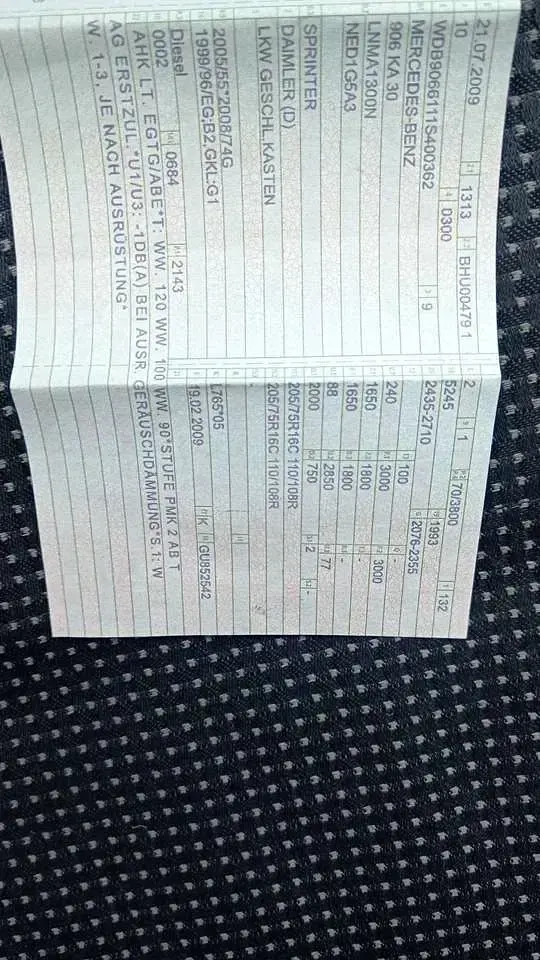 21.07.2009 2.1 1313 2.2 BHU00479 1
10 4 0300
WDB9066111S400362 3 9
MERCEDES-BENZ
906 KA 30
LNMA1300N
NED1G5A3
SPRINTER
DAIMLER (D)
LKW GESCHL.KASTEN
2005/55*2008/74G
1999/96/EG;B2,GKL:G1
Diesel P.1 2143
0002 0684
AHK LT. EGTG/ABE*T: WW. 120 WW. 100 WW. 90*STUFE PMK 2 AB T
AG ERSTZUL.*U1/U3: -1DB(A) BEI AUSR. GERÄUSCHDÄMMUNG*S.1: W
W. 1-3, JE NACH AUSRÜSTUNG*
2 9 1 70/3800 T 132
5245 19 1993
2435-2710 G 2076-2355
240 13 100 -
1650 3000 3000
1650 1800 -
88 1800 -
2000 2850 77
750 S.1 2 S.2 -
205/75R16C 110/108R
205/75R16C 110/108R
-
L765*05
19.02.2009 17 K 16 GU852542